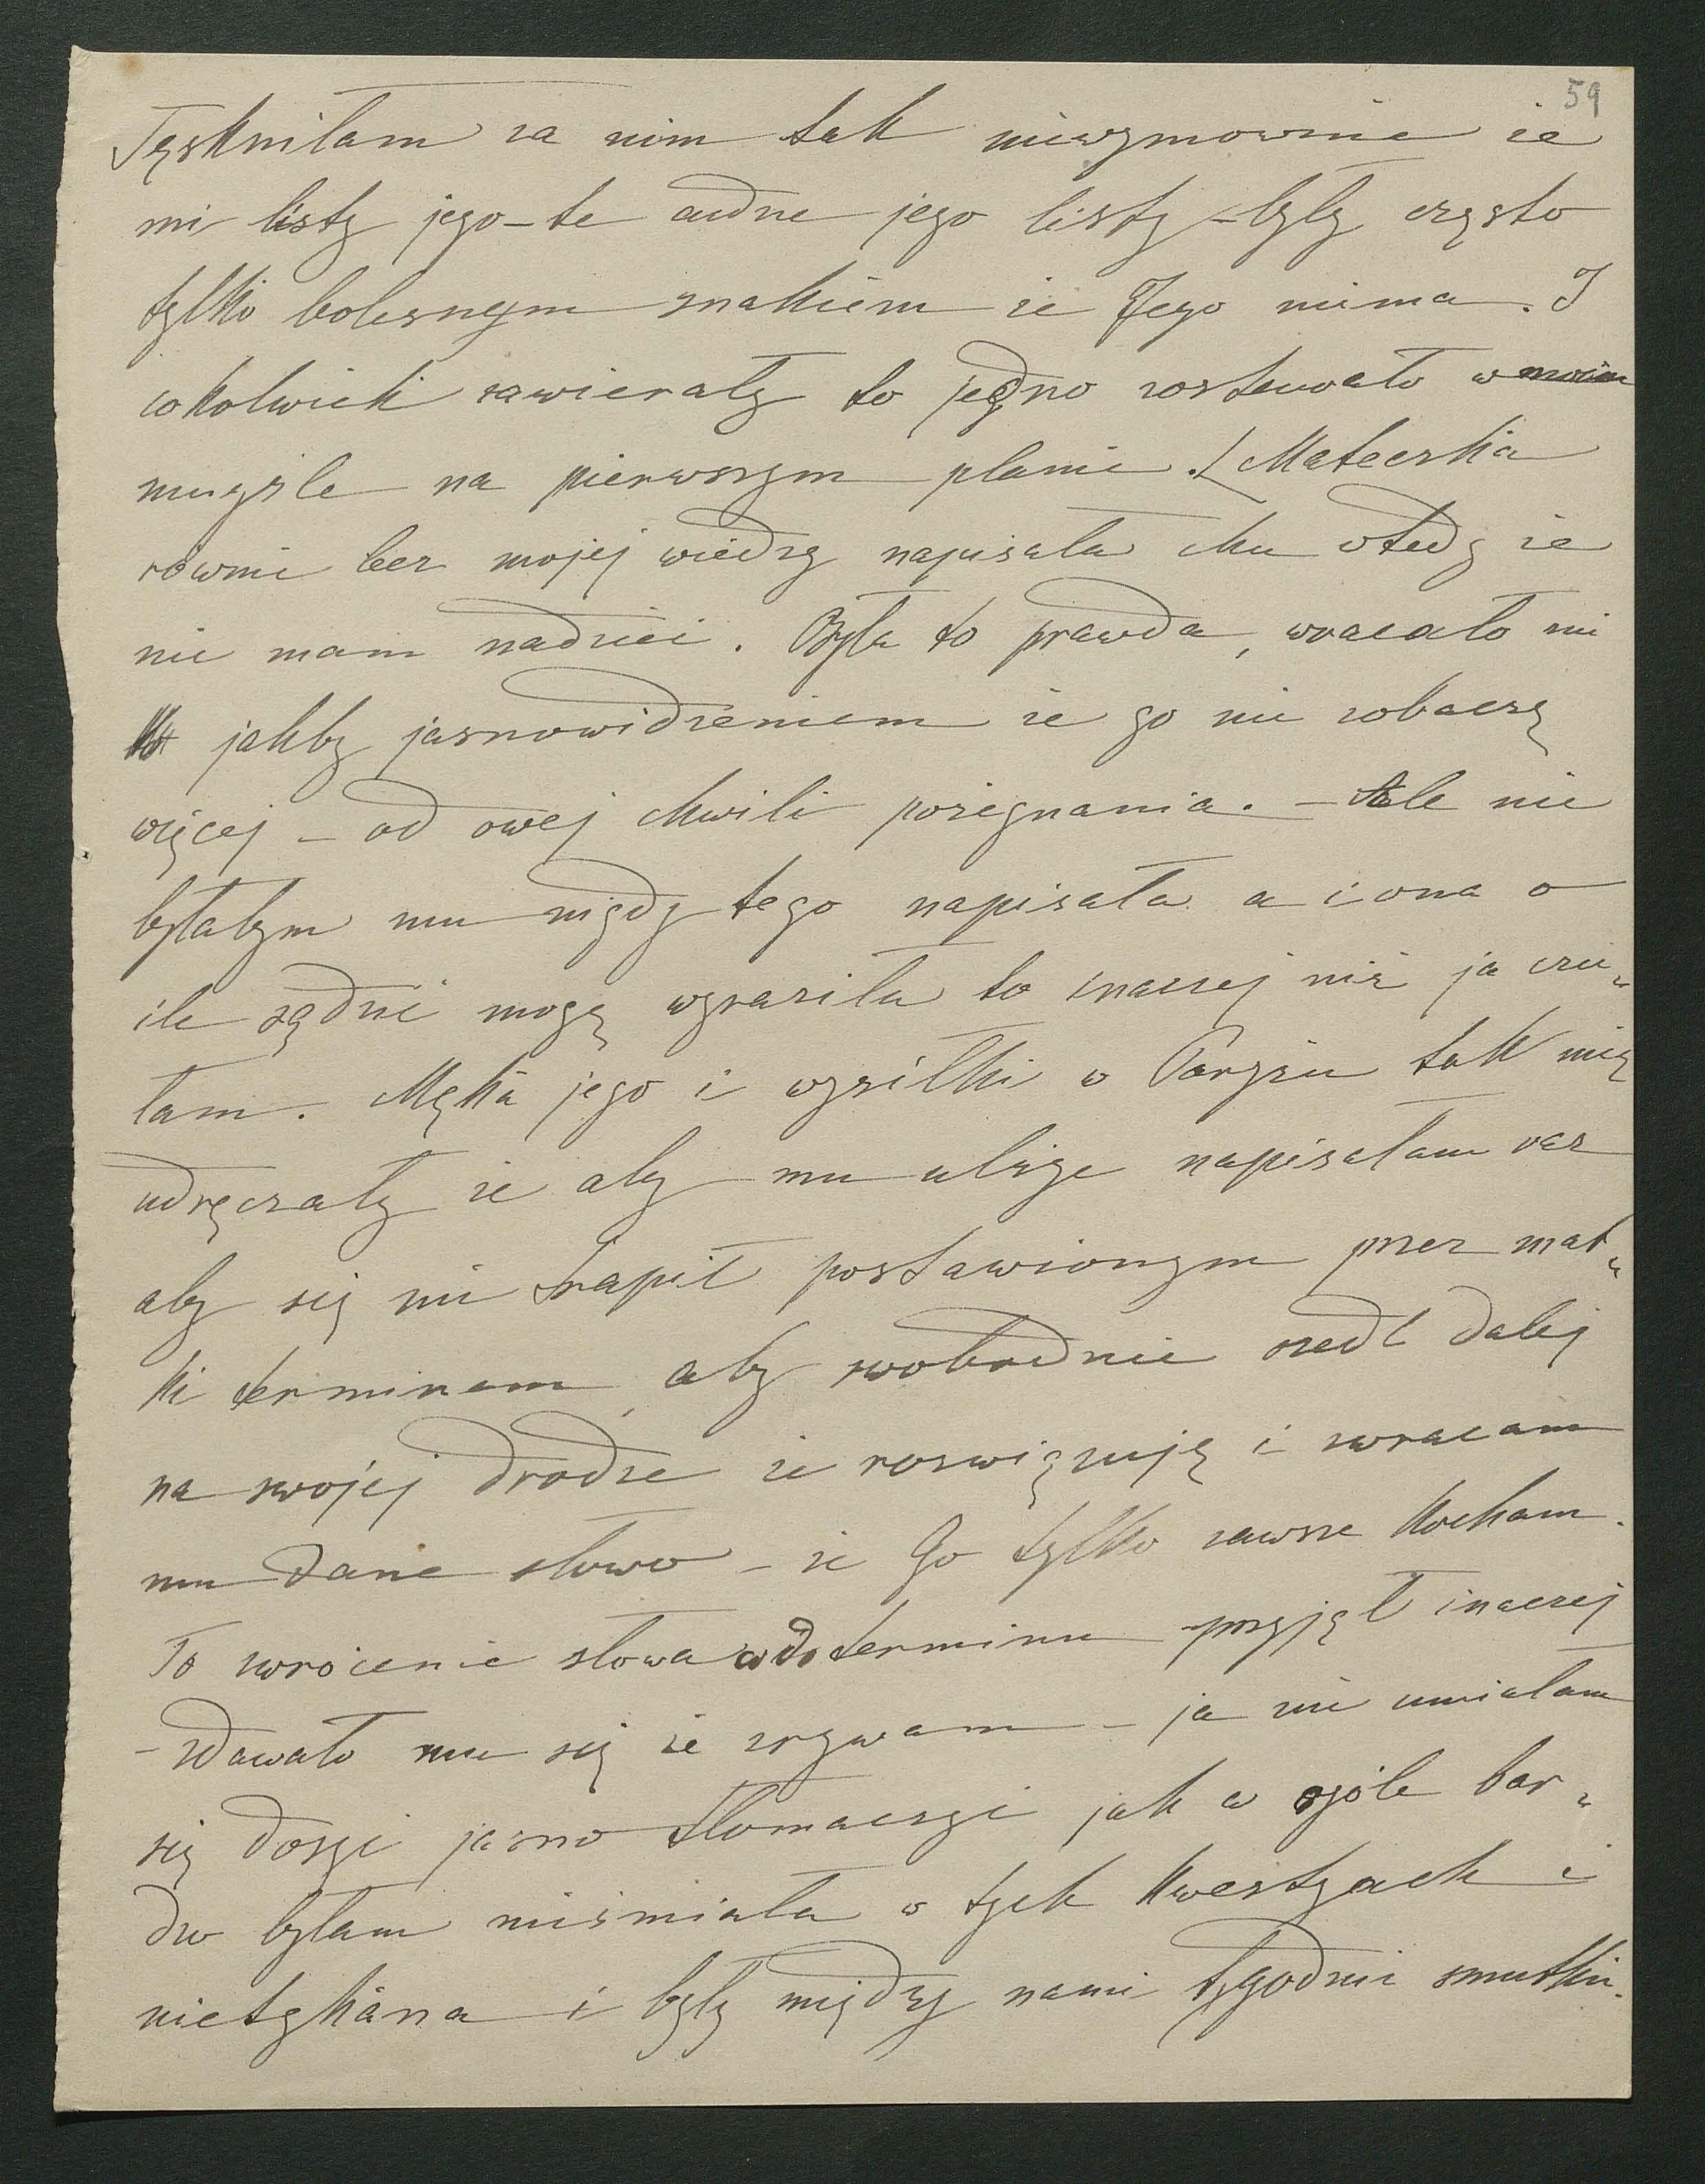 59
Tęskniłam za nim tak niewymownie że
mi listy jego – te cudne jego listy – były często
tylko bolesnym znakiem że Jego niema. I
cokolwiek zawierały to jedno zostawało w moim
mugśle na pierwszym planie. Mateczka
równie bez mojej wiedzy napisała Mu wtedy że
nie mam nadziei. Była to prawda, wracało mi
jakby jasnowidzeniem że go nie zobaczę
więcej – od owej chwili pożegnania. – Ale nie
byłabym mu nigdy tego napisała a i ona o
ile sądzić mogę wyraziła to inaczej niż ja czu„
łam. Męka jego i wysiłki w Paryżu tak mię
udręczały że aby mu ulżyć napisałam raz
aby się nie trapił postawionym przez mat„
ki terminem, aby swobodnie szedł dalej
na swojej drodze że rozwiązuję i zwracam
mu dane słowo – że Go tylko zawsze kocham.
To zwrócenie słowa co do terminu przyjął inaczej
– zdawało mu się że zrywam – ja nie umiałam
się dosyć jasno tłomaczyć jak w ogóle bar„
dzo byłam nieśmiała w tych kwestyach i
nietykana i były między nami tygodnie smutku.